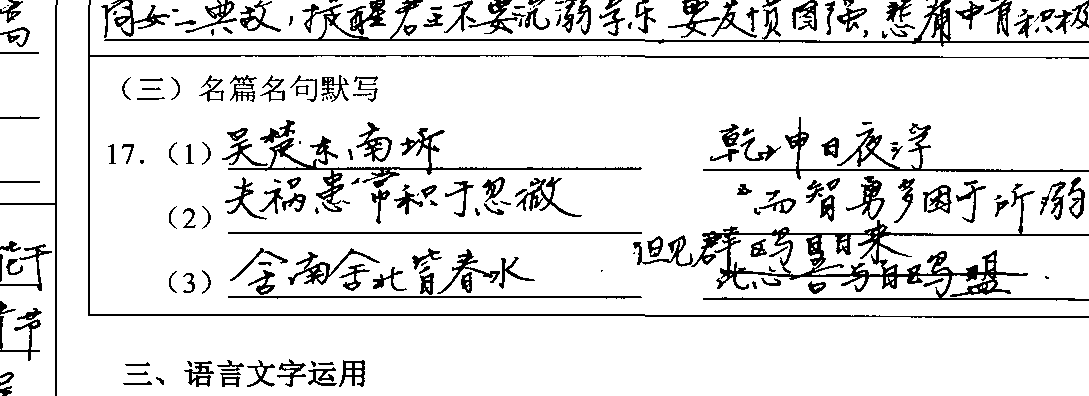 同女二典故,提醒君王不要沉溺享乐 要发愤图强,悲痛中有积极
(三)名篇名句默写
17.(1)吴楚东南坼 乾坤日夜浮
(2)夫祸患常积于忽微 而智勇多困于所溺
但见群鸥日日来
(3)舍南舍北皆春水 此心吾与白鸥盟.
三、语言文字运用
节